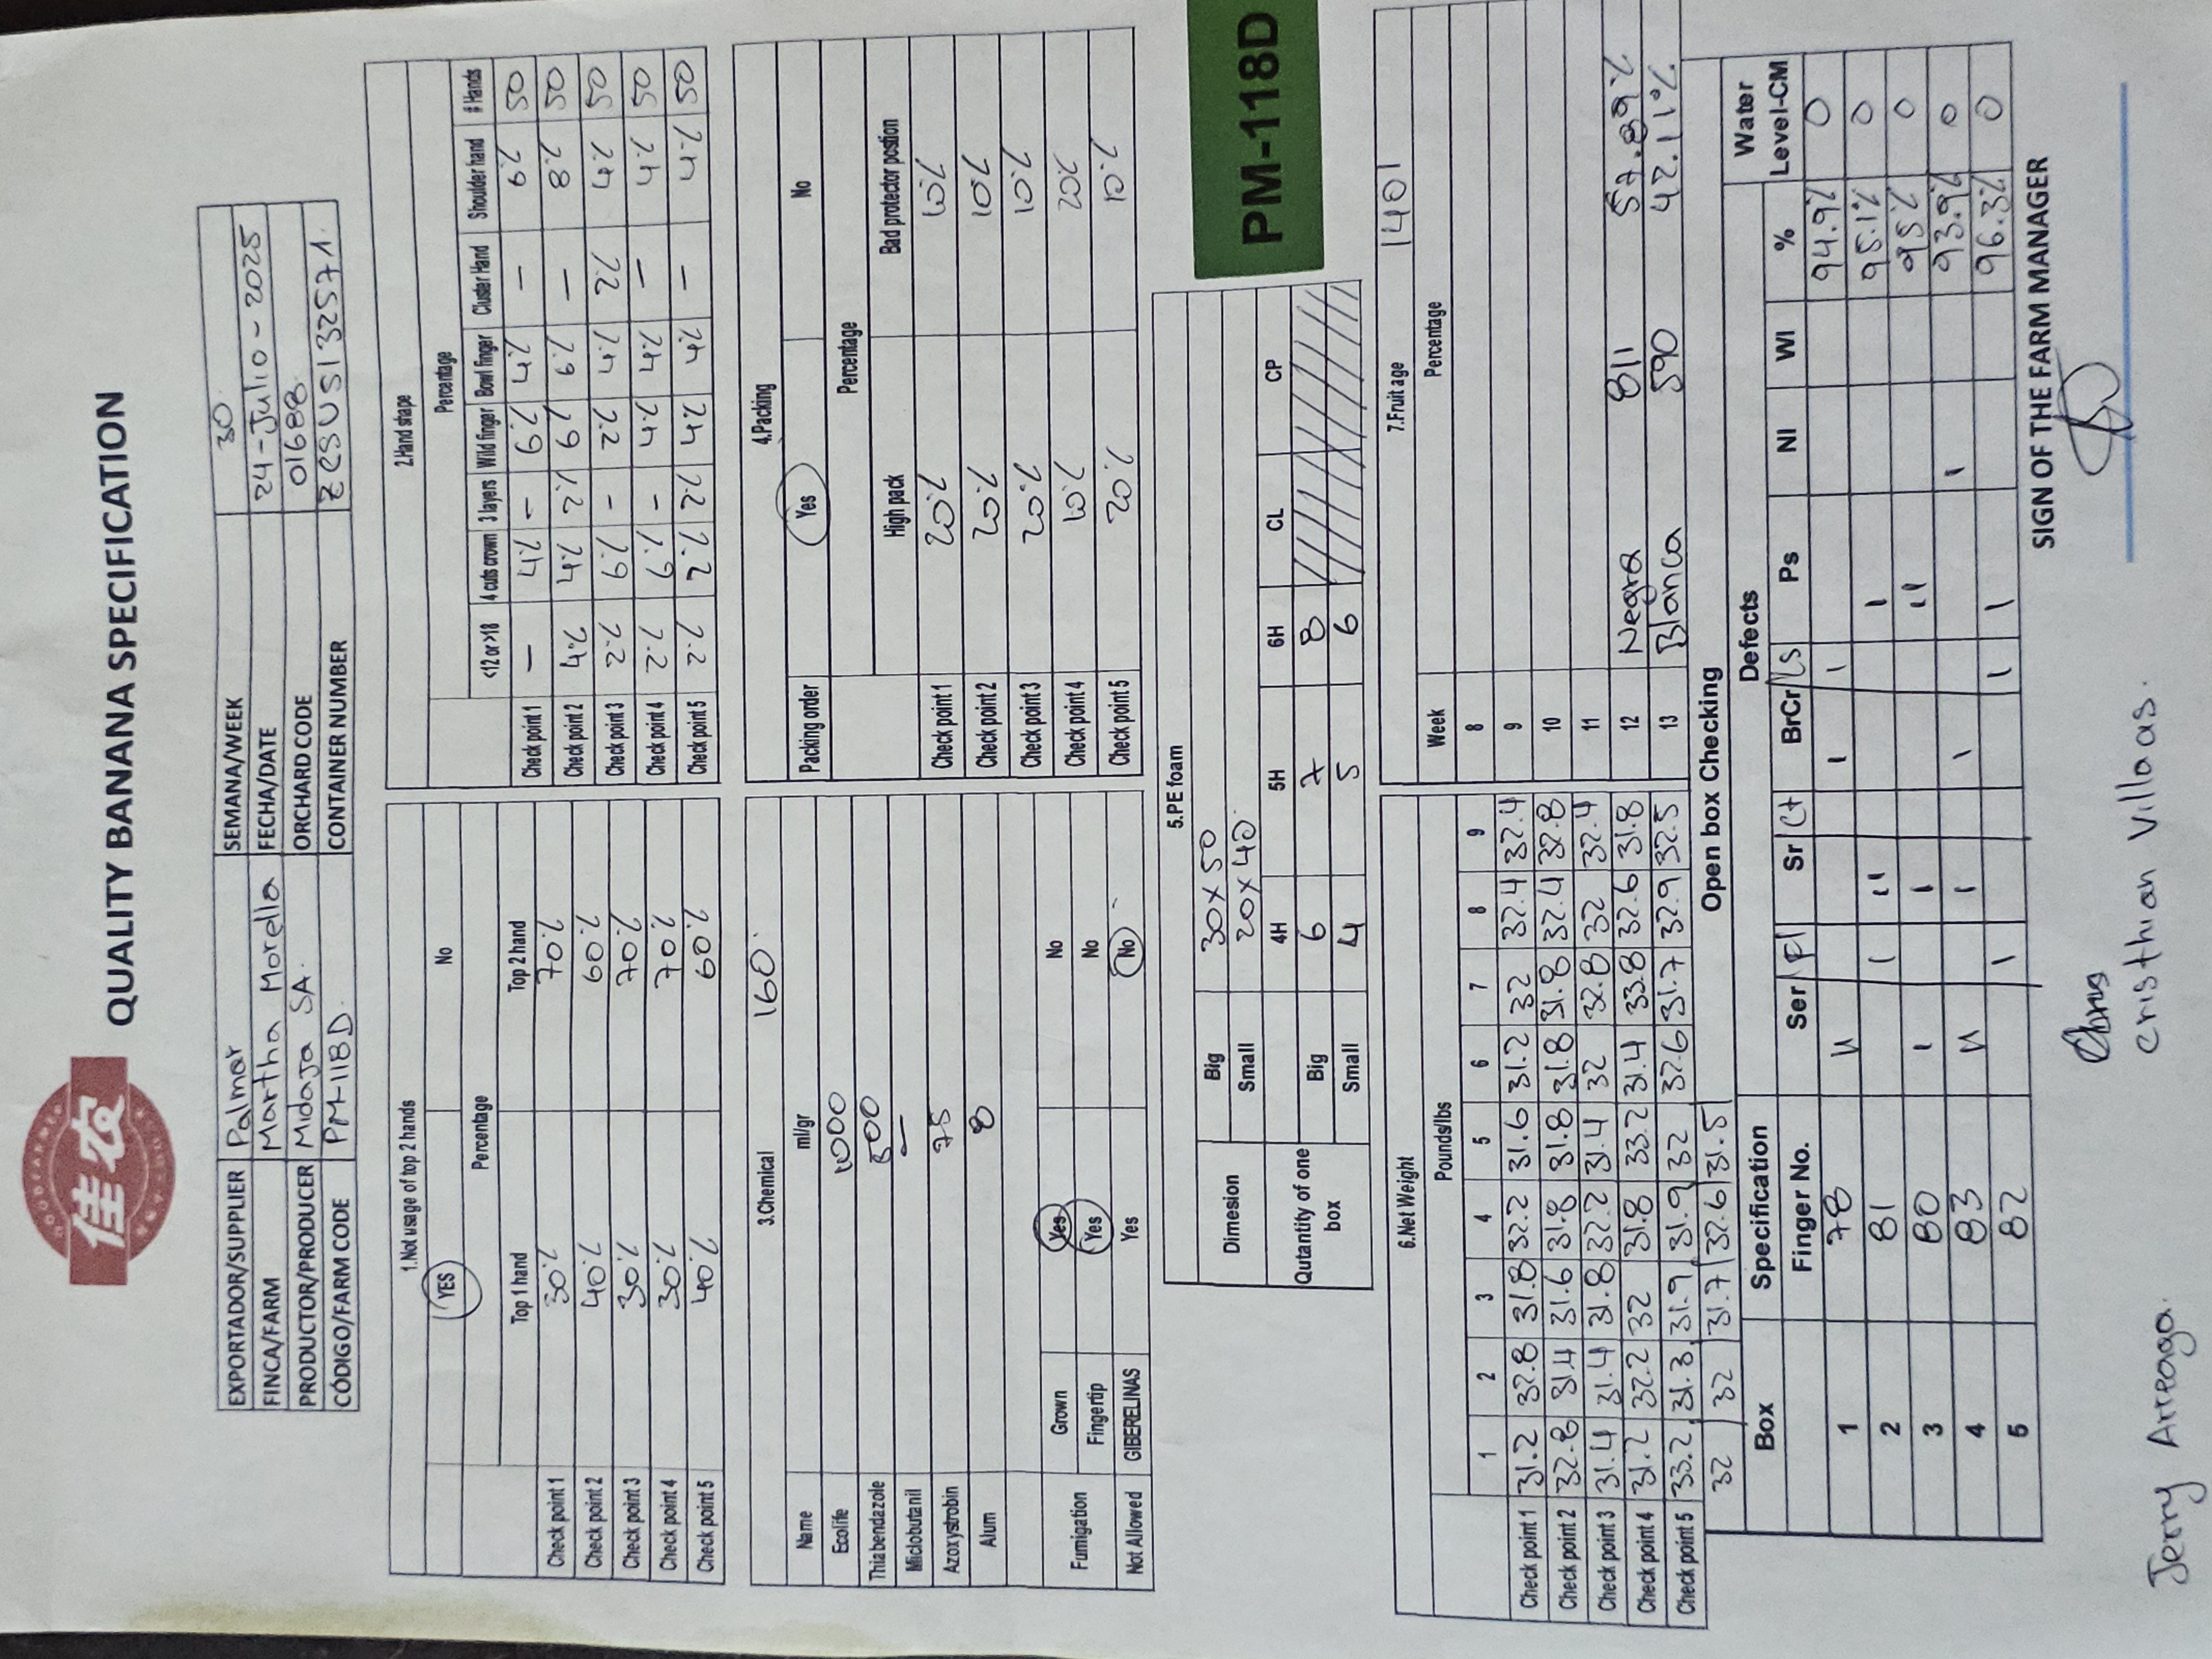 GOODFARMER
佳农
QUALITY BANANA SPECIFICATION
EXPORTADOR/SUPPLIER Palmar SEMANA/WEEK 30
FINCA/FARM Martha Morella FECHA/DATE 24-Julio-2025
PRODUCTOR/PRODUCER Midaja SA. ORCHARD CODE 01688
CÓDIGO/FARM CODE PM-118D. CONTAINER NUMBER ZCSU5132571.
1.Not usage of top 2 hands
YES No
Percentage
Top 1 hand Top 2 hand
Check point 1 30% 70%
Check point 2 40% 60%
Check point 3 30% 70%
Check point 4 30% 70%
Check point 5 40% 60%
2.Hand shape
Percentage
<12 or >18 4 cuts crown 3 layers Wild finger Bowl finger Cluster Hand Shoulder hand # Hands
Check point 1 — 4% - 6% 4% — 6% 50
Check point 2 4% 4% 2% 6% 6% — 8% 50
Check point 3 2% 6% - 2% 4% 2% 4% 50
Check point 4 2% 6% - 4% 4% — 4% 50
Check point 5 2% 2% 2% 4% 4% — 4% 50
3.Chemical 160
Name ml/gr
Ecolife 1000
Thiabendazole 500
Miclobutanil —
Azoxystrobin 75
Alum 8
Fumigation Grown Yes No
Fingertip Yes No
Not Allowed GIBERELINAS Yes No
4.Packing
Packing order Yes No
Percentage
High pack Bad protector postion
Check point 1 20% 10%
Check point 2 20% 10%
Check point 3 20% 10%
Check point 4 10% 20%
Check point 5 20% 10%
5.PE foam
Dimesion Big 30x50
Small 20x40
Qutantity of one box 4H 5H 6H CL CP
Big 6 7 8
Small 4 5 6
PM-118D
6.Net Weight
Pounds/lbs
1 2 3 4 5 6 7 8 9
Check point 1 31.2 32.8 31.8 32.2 31.6 31.2 32 32.4 32.4
Check point 2 32.8 31.4 31.6 31.8 31.8 31.8 31.8 32.4 32.8
Check point 3 31.4 31.4 31.8 32.2 31.4 32 32.8 32 32.4
Check point 4 31.2 32.2 32 31.8 33.2 31.4 33.8 32.6 31.8
Check point 5 33.2 31.3 31.9 31.9 32 32.6 31.7 32.9 32.5
32 32 31.7 32.6 31.5
7.Fruit age 1401
Week Percentage
8
9
10
11
12 Negra 811 57.89%
13 Blanca 590 42.11%
Open box Checking
Box Specification Defects Water
Finger No. Ser Fl Sr Ct BrCr Ls Ps NI WI % Level-CM
1 78 II I I 94.9% 0
2 81 I II I 95.1% 0
3 80 I I II 95% 0
4 83 II I I I 93.9% 0
5 82 I I I 96.3% 0
SIGN OF THE FARM MANAGER
cristhian Villaas.
Jerry Arreaga.